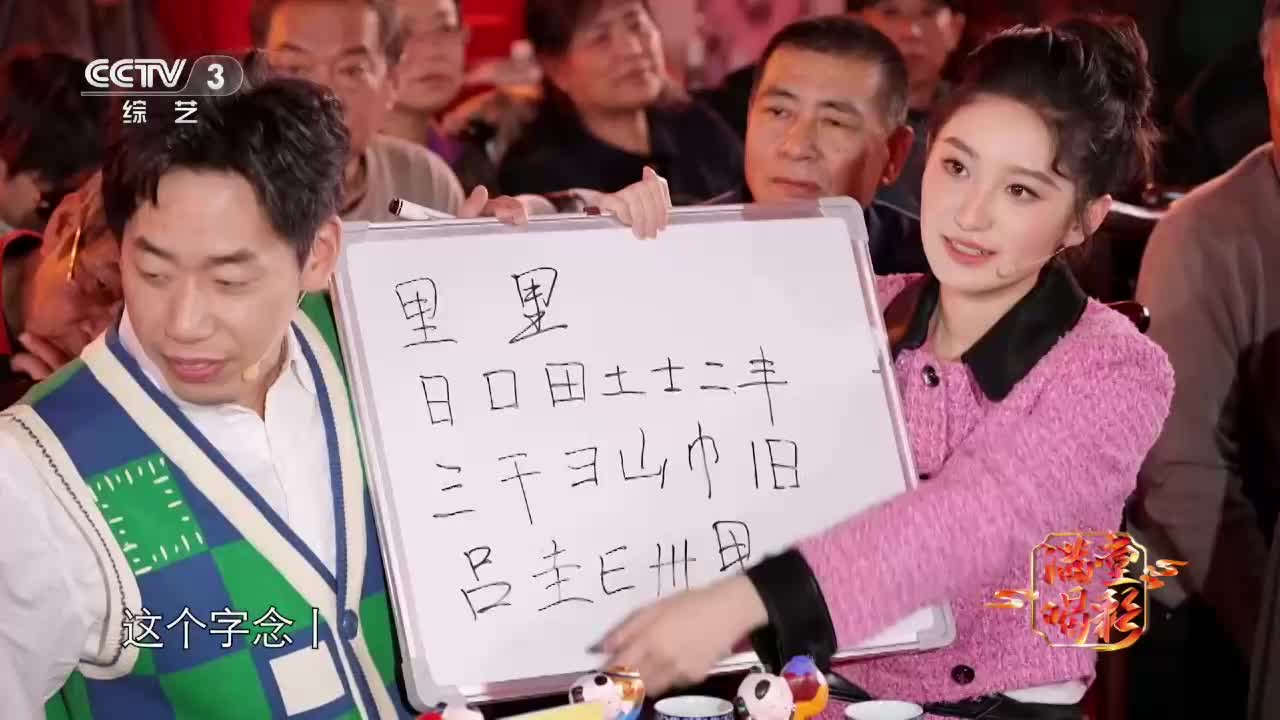 CCTV 3
综艺
里 里
日口田土士二丰
三干彐山巾旧
吕圭E卅甲
这个字念丨
满堂喝彩